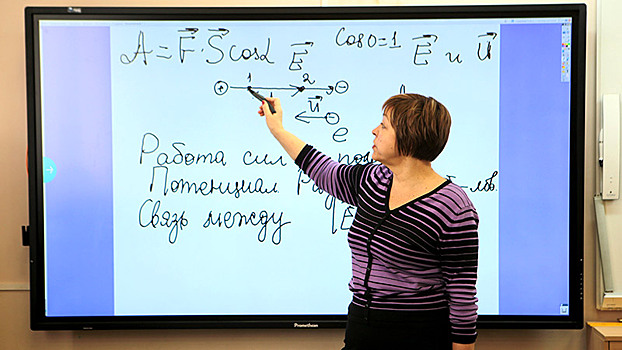 A = F · S cosα E cos0=1 E и U
1 2
+ −
U −
e
Работа сил
Потенциал
Связь между E
Promethean